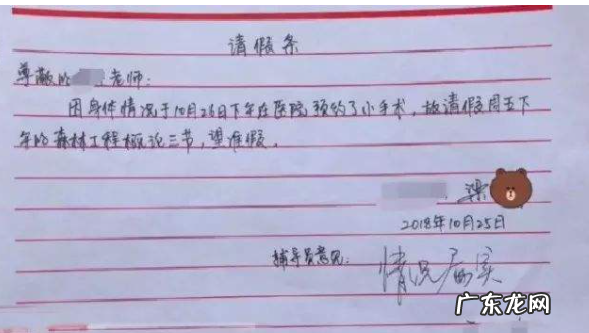 请假条
尊敬的 老师:
因身体情况于10月26日下午在医院预约了小手术,故请假周五下
午的森林工程概论三节,望准假。
梁
2018年10月25日
辅导员意见: 情况属实
广东龙网